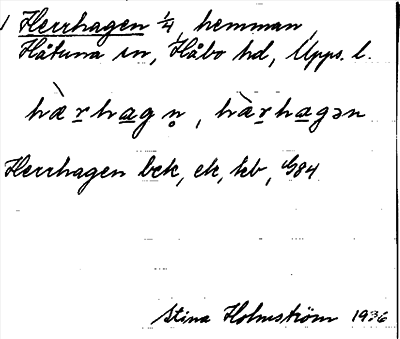 1 Herrhagen 1/4, hemman,
Håtuna sn, Håbo hd, Upps. l.
hàrhagn̥, hàrhagən
Herrhagen bck, ek, kb,
Stina Holmström 1936